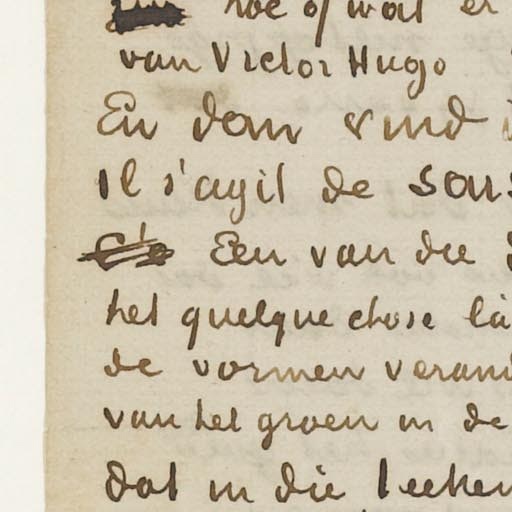 hoe of wat er
van Victor Hugo
En dan vind
Il s'agit de sous
Een van die
het quelque chose là
de vormen verand
van het groen in de
dat in die teeken